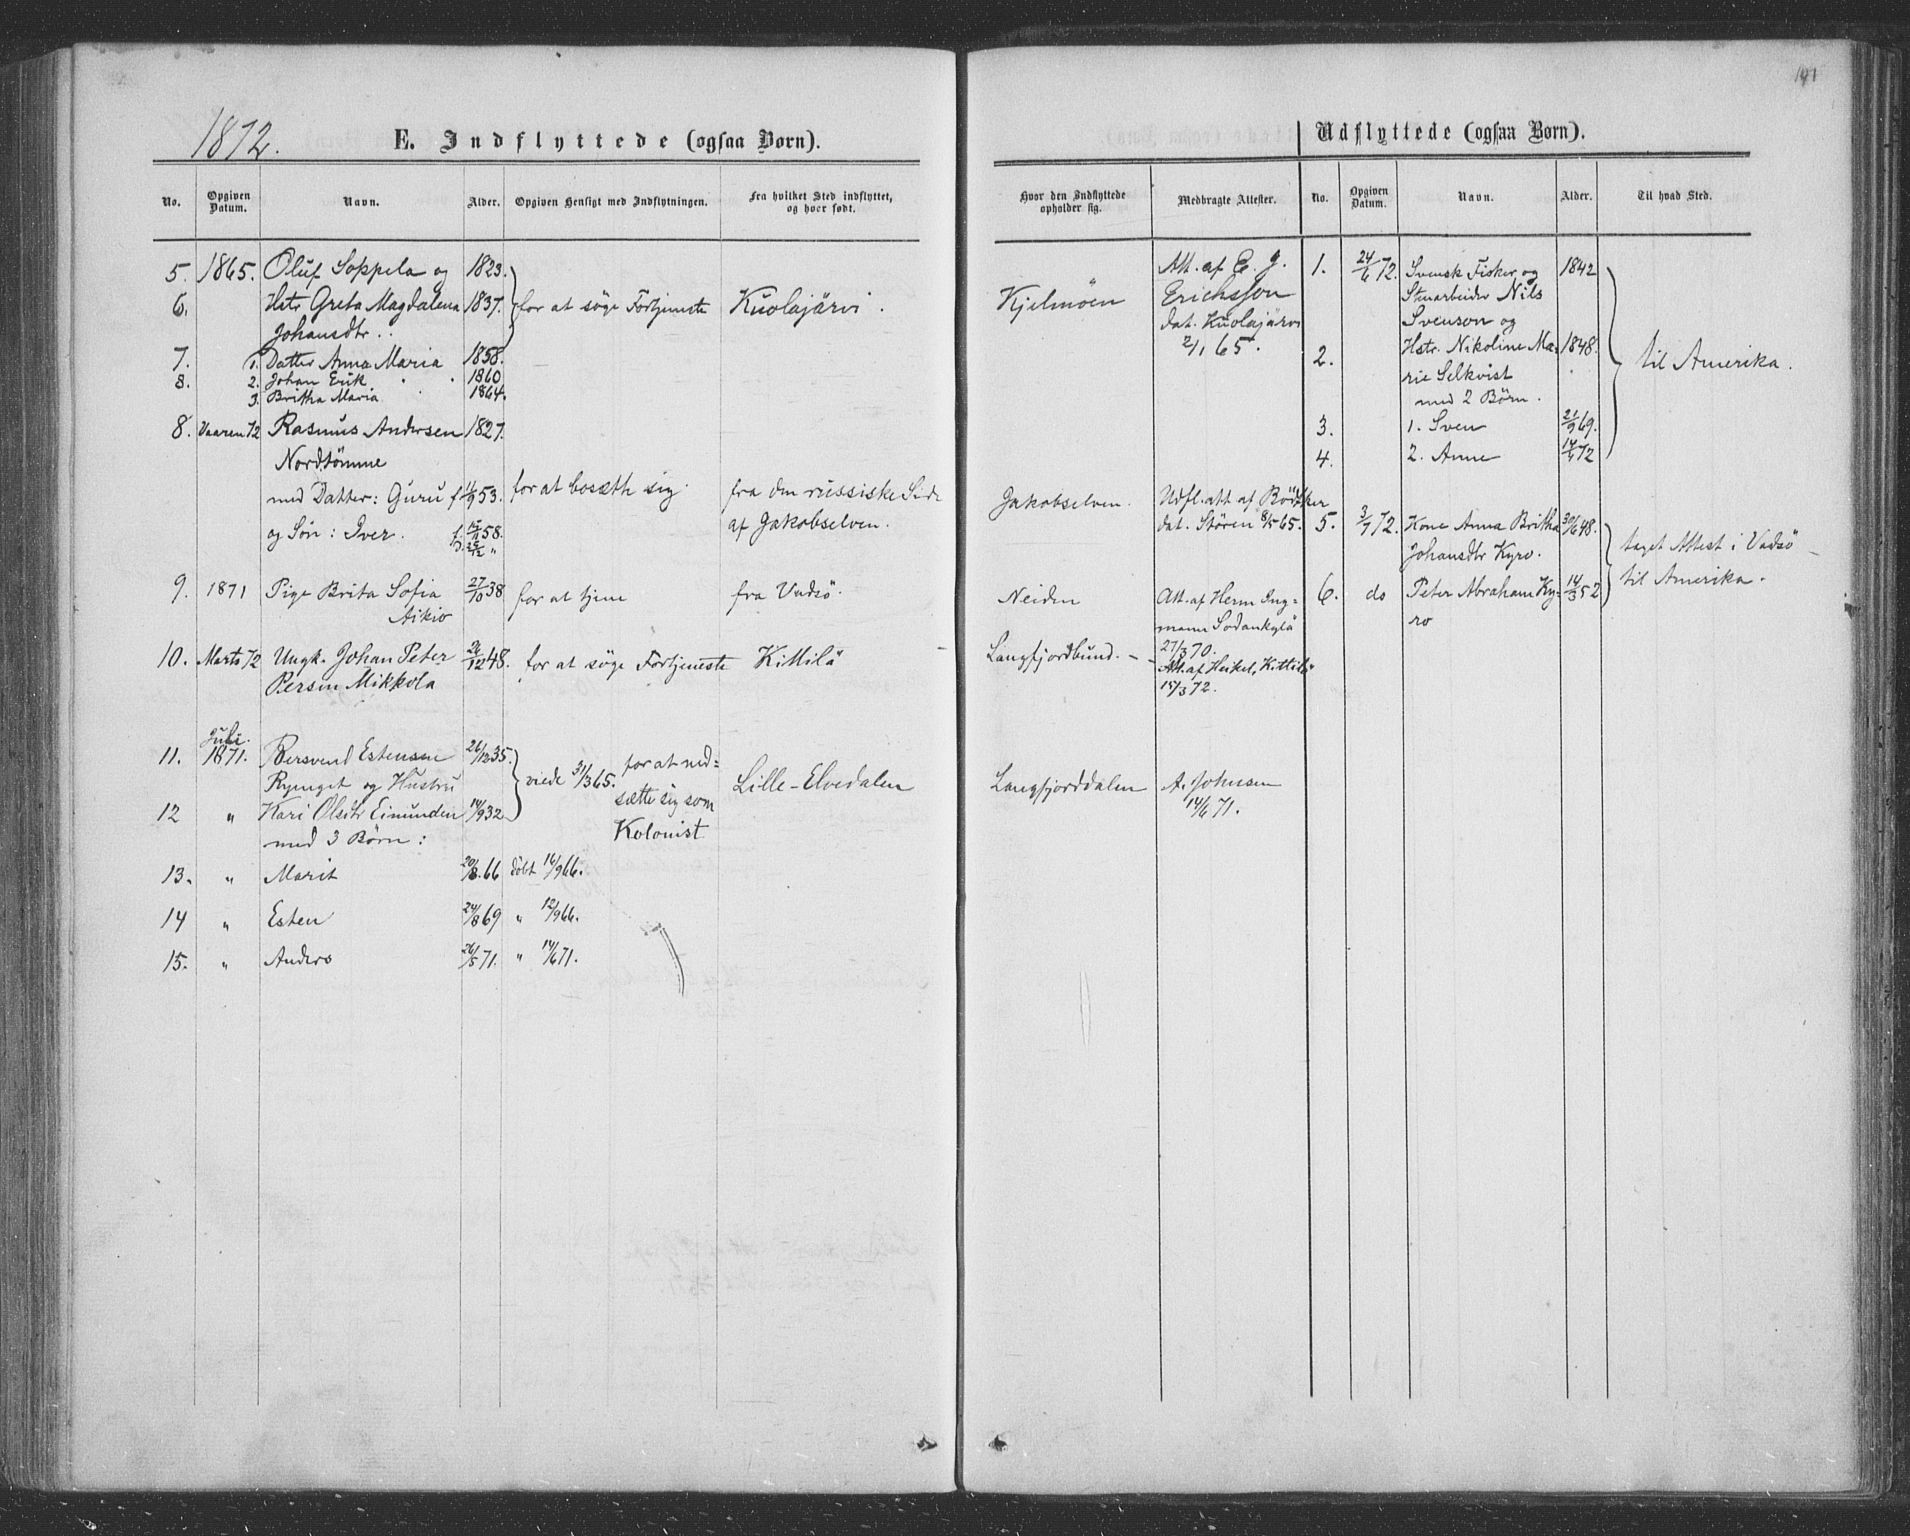 191
1872.
E. Indflyttede (ogsaa Børn).
No.
Opgiven Datum.
Navn.
Alder.
Opgiven Hensigt med Indflytningen.
Fra hvilket Sted indflyttet, og hvor født.
5. 1865. Oluf Soppela og 1823.
6. Hstr. Greta Magdalena 1837. for at söge Fortjeneste Kuolajärvi.
Johansdtr.
7. 1. Datter Anna Maria 1858.
8. 2. Johan Erik 1860
3. Britha Maria 1864.
8. Vaaren 72 Rasmus Andersen 1827.
Nordtömme
med Datter: Guru f. 11/9 53. for at bosætte sig. fra den russiske Side
og Søn: Iver. f. 15/11 58. af Jakobselven.
D. 25/12 "
9. 1871 Pige Brita Sofia 27/10 38 for at tjene fra Vadsö.
Aikio
10. Marts 72 Ungk. Johan Peter 26/12 48. for at söge Fortjeneste Kittilä
Persen Mikkola
Juli
11. 1871. Bersvend Estensen 26/12 35. for at ned=
Rymget og Hustru viede 31/3 65. sætte sig som Lille-Elvedalen
12 " Kari Olsdtr Eimunden 14/9 32 Kolonist
med 3 Börn:
13. " Marit 20/8. 66 döbt 16/9 66.
14 " Esten 24/8 69 " 12/9 66.
15. " Anders 26/5 71. " 14/6 71.
Udflyttede (ogsaa Børn).
Hvor den Indflyttede opholder sig.
Medbragte Attester.
No.
Opgiven Datum.
Navn.
Alder.
Til hvad Sted.
Kjelmöen
Att. af E. J.
Ericksson
dat. Kuolajärvi
2/1 65.
Jakobselven.
Udfl. att af Bödtker
dat. Stören 8/5 65.
Neiden
Att. af Herm Ing=
mann Sodankylä
27/3 70.
Langfjordbund.
Att. af Heikel, Kittilä
15/3 72.
Langfjorddalen
A. Johnsen
14/6 71.
1. 24/6 72. Svensk Fisker og 1842
Stenarbeider Nils
Svenson og
2. Hstr. Nikoline Ma= 1848. til Amerika.
rie Selkvist
med 2 Börn.
3. 1. Sven 21/9 69.
4. 2. Anne 14/4 72
5. 3/7 72. Kone Anna Britha 30/6 48. taget Attest i Vadsö
Johansdtr Kyro. til Amerika.
6. do Peter Abraham Ky= 14/3 52
ro